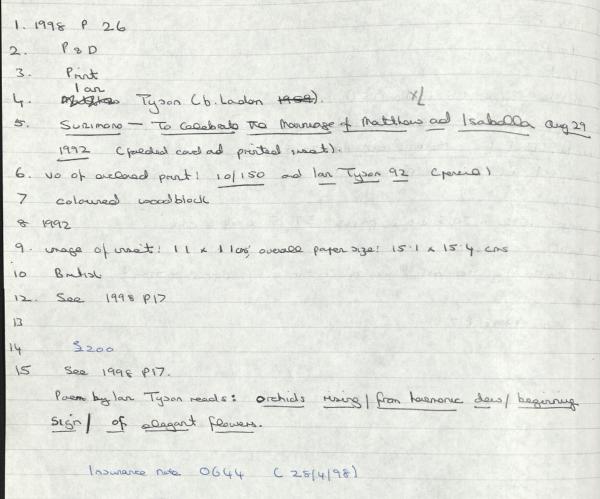 1. 1998 P 26
2. P & D
3. Print
Ian
4. Tyson (b. London 1958).
5. Surimono — To Celebrate the Marriage of Matthew and Isabella Aug 29
1992 (folded card and printed insert).
6. vo of enclosed print: 10/150 and Ian Tyson 92 (pencil)
7 coloured woodblock
8 1992
9. image of insert: 11 x 11 cms, overall paper size: 15.1 x 15.4 cms
10 British
12. See 1998 P17
13
14 $200
15 See 1998 P17.
Poem by Ian Tyson reads: orchids rising / from harmonic dew / beginning
sign / of elegant flowers.
Insurance note 0644 (28/4/98)